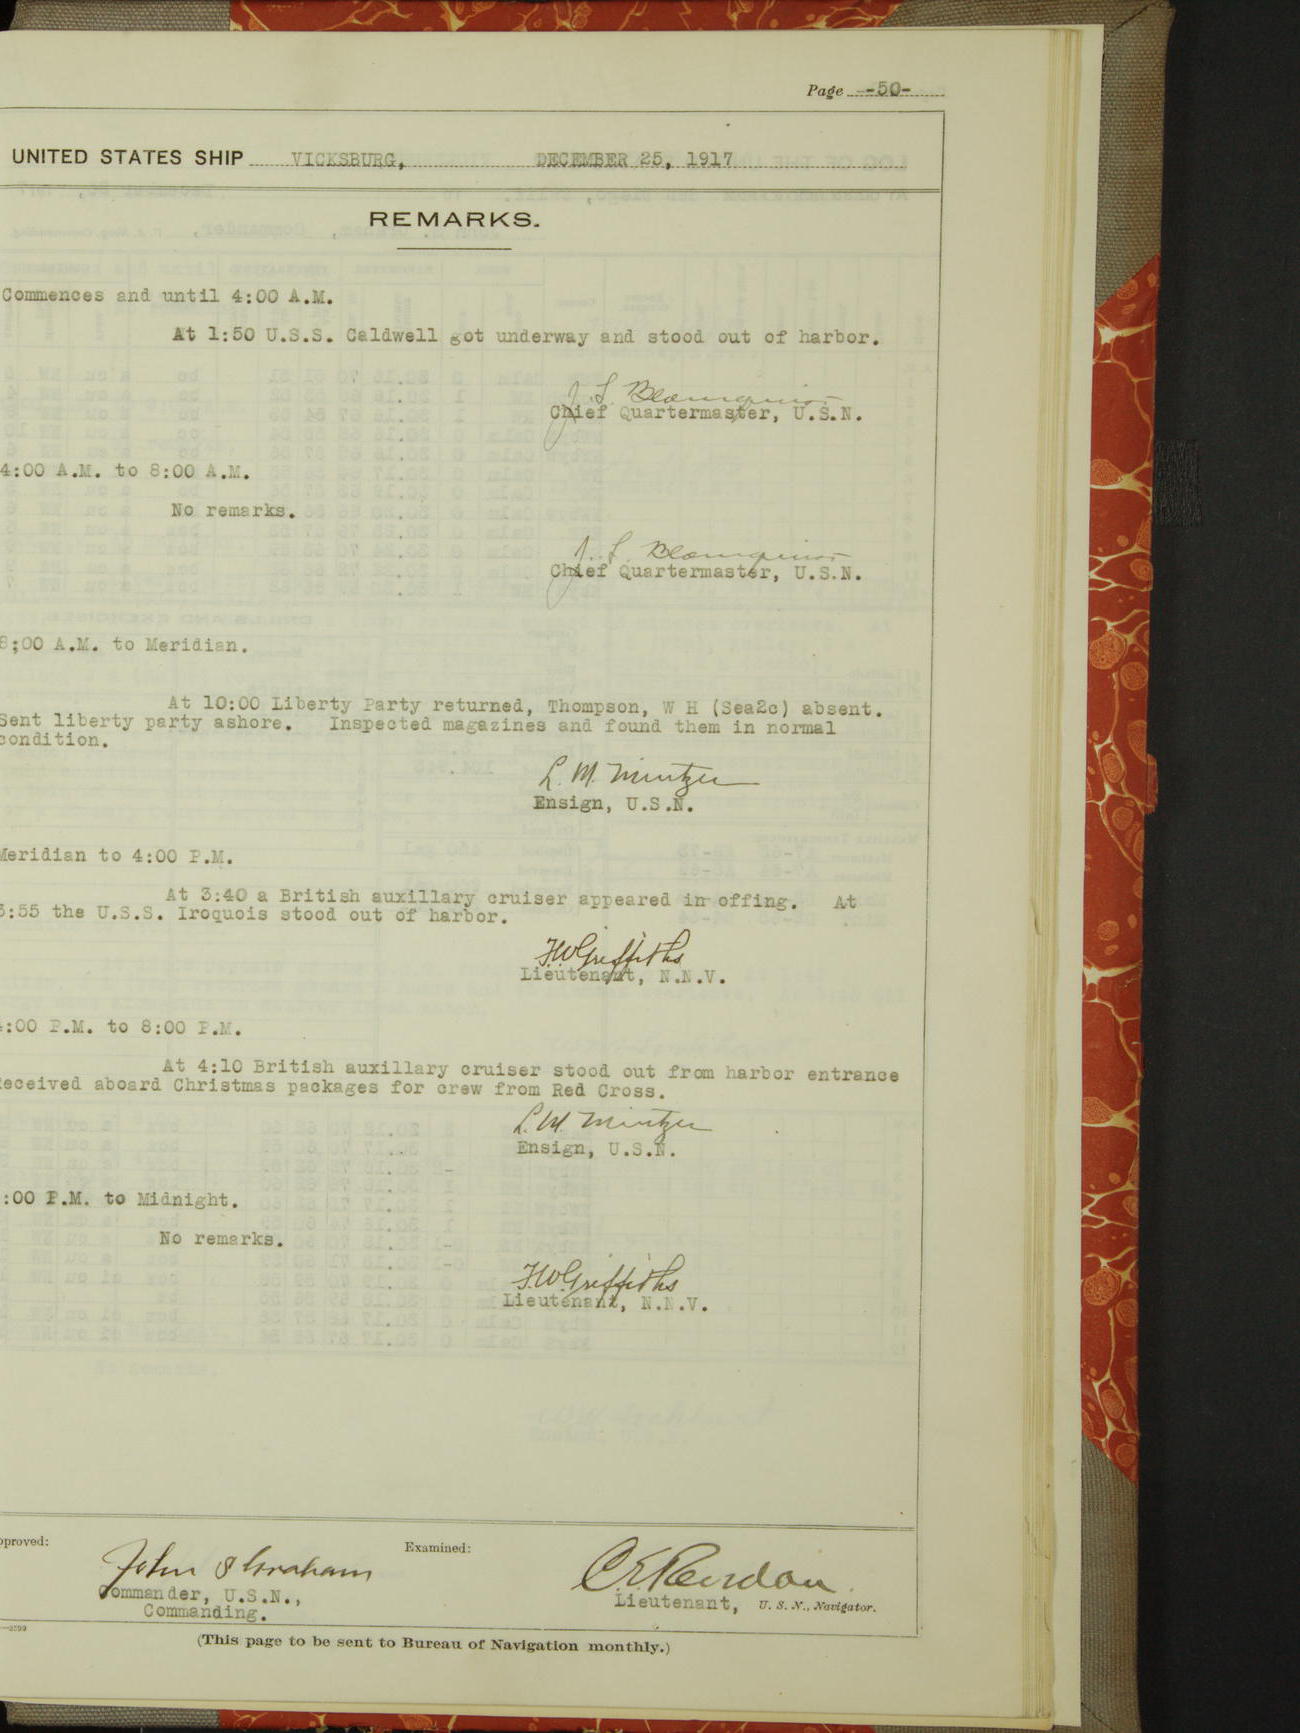 Page -50-
UNITED STATES SHIP VICKSBURG, DECEMBER 25, 1917
REMARKS.
Commences and until 4:00 A.M.
At 1:50 U.S.S. Caldwell got underway and stood out of harbor.
J. L.
Chief Quartermaster, U.S.N.
4:00 A.M. to 8:00 A.M.
No remarks.
J. L.
Chief Quartermaster, U.S.N.
8;00 A.M. to Meridian.
At 10:00 Liberty Party returned, Thompson, W H (Sea2c) absent.
Sent liberty party ashore. Inspected magazines and found them in normal
condition.
L. M. Mintzer
Ensign, U.S.N.
Meridian to 4:00 P.M.
At 3:40 a British auxillary cruiser appeared in offing. At
3:55 the U.S.S. Iroquois stood out of harbor.
F.W. Griffiths
Lieutenant, N.N.V.
:00 P.M. to 8:00 P.M.
At 4:10 British auxillary cruiser stood out from harbor entrance
eceived aboard Christmas packages for crew from Red Cross.
L. M. Mintzer
Ensign, U.S.N.
:00 P.M. to Midnight.
No remarks.
F.W. Griffiths
Lieutenant, N.N.V.
pproved:
Examined:
John S Graham
Commander, U.S.N.,
Commanding.
C. E. Reordan
Lieutenant, U. S. N., Navigator.
(This page to be sent to Bureau of Navigation monthly.)